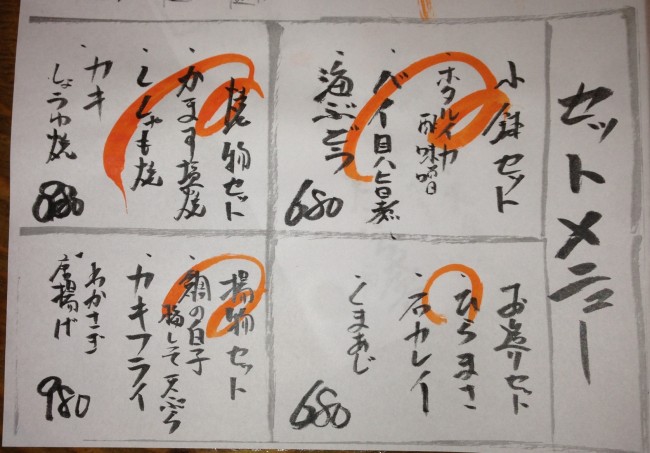 セットメニュー
小鉢セット
・ホタルイカ
酢味噌
・バイ貝旨煮
・海ぶどう
680
お造りセット
ひらまさ
・石カレイ
・しまあじ
680
焼物セット
・かます塩焼
・ししゃも焼
・カキ
しょうゆ焼
880
揚物セット
・鯛の白子
梅しそ天ぷら
・カキフライ
・わかさぎ
唐揚げ
980